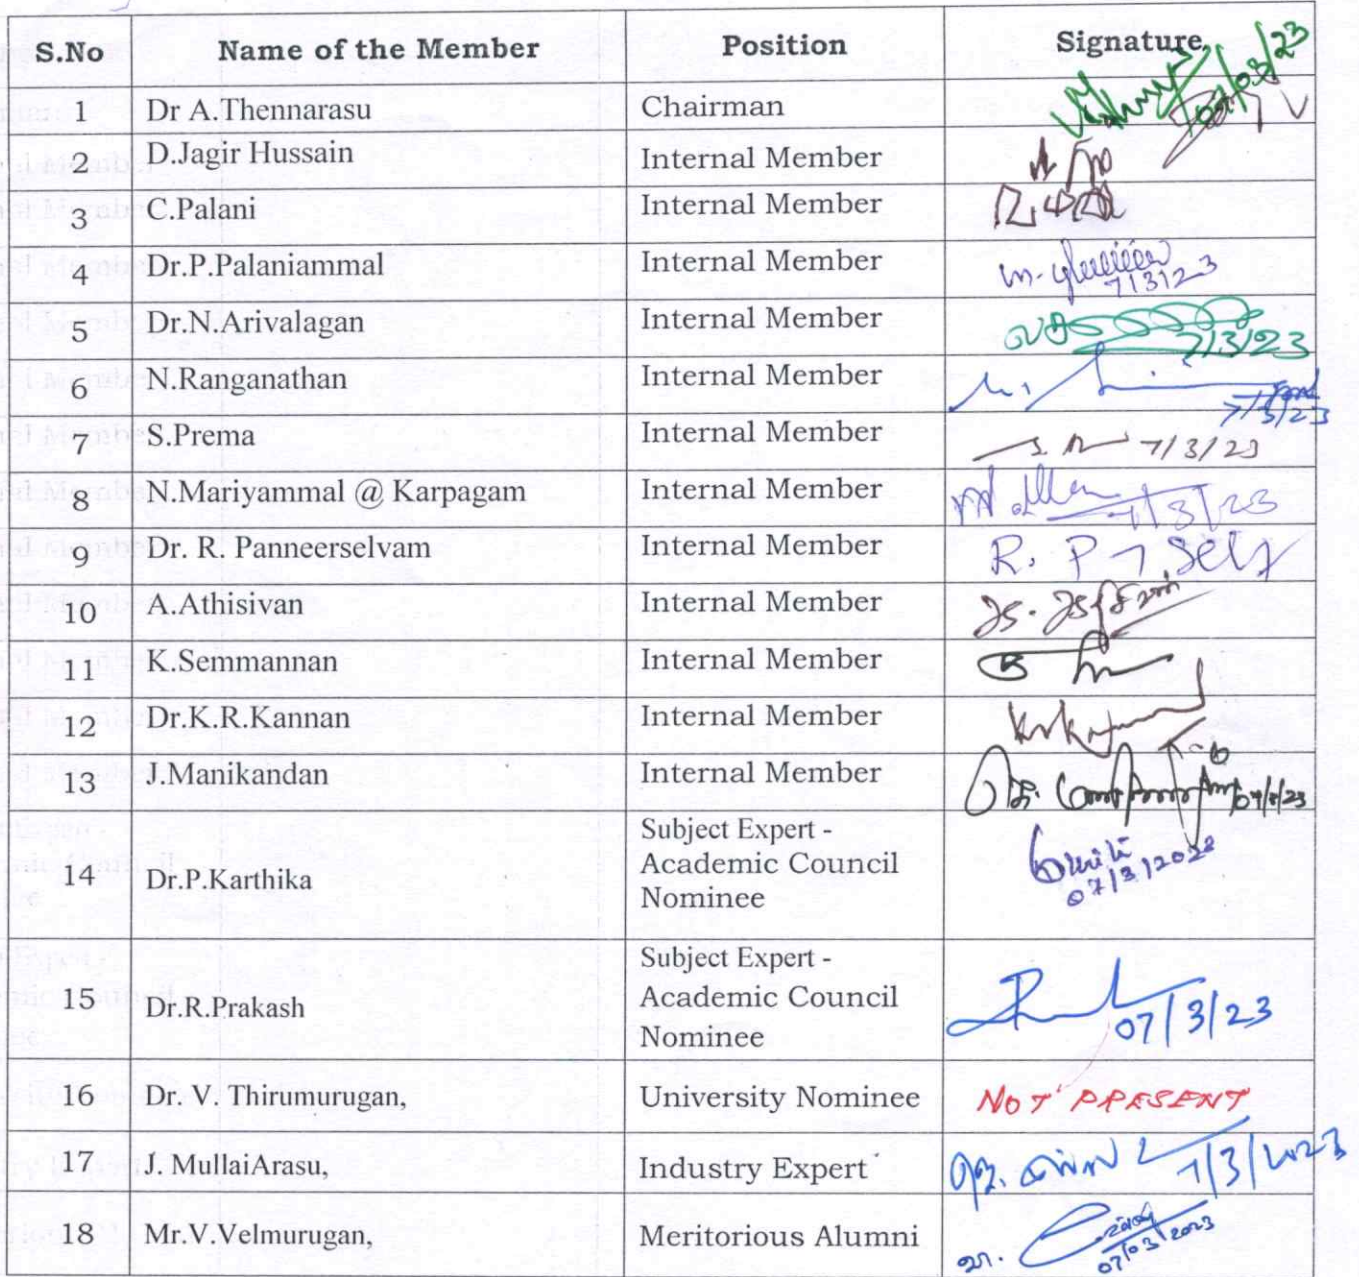 S.No Name of the Member Position Signature
07/03/23
1 Dr A.Thennarasu Chairman
2 D.Jagir Hussain Internal Member
3 C.Palani Internal Member
4 Dr.P.Palaniammal Internal Member
7/3/23
5 Dr.N.Arivalagan Internal Member
7/3/23
6 N.Ranganathan Internal Member
7/3/23
7 S.Prema Internal Member 7/3/23
8 N.Mariyammal @ Karpagam Internal Member 7/3/23
9 Dr. R. Panneerselvam Internal Member R. P
10 A.Athisivan Internal Member
11 K.Semmannan Internal Member
12 Dr.K.R.Kannan Internal Member
13 J.Manikandan Internal Member
14 Dr.P.Karthika Subject Expert -
Academic Council
Nominee
15 Dr.R.Prakash Subject Expert -
Academic Council
Nominee
07/3/23
16 Dr. V. Thirumurugan, University Nominee NOT PRESENT
17 J. MullaiArasu, Industry Expert 7/3/2023
18 Mr.V.Velmurugan, Meritorious Alumni
07/03/2023